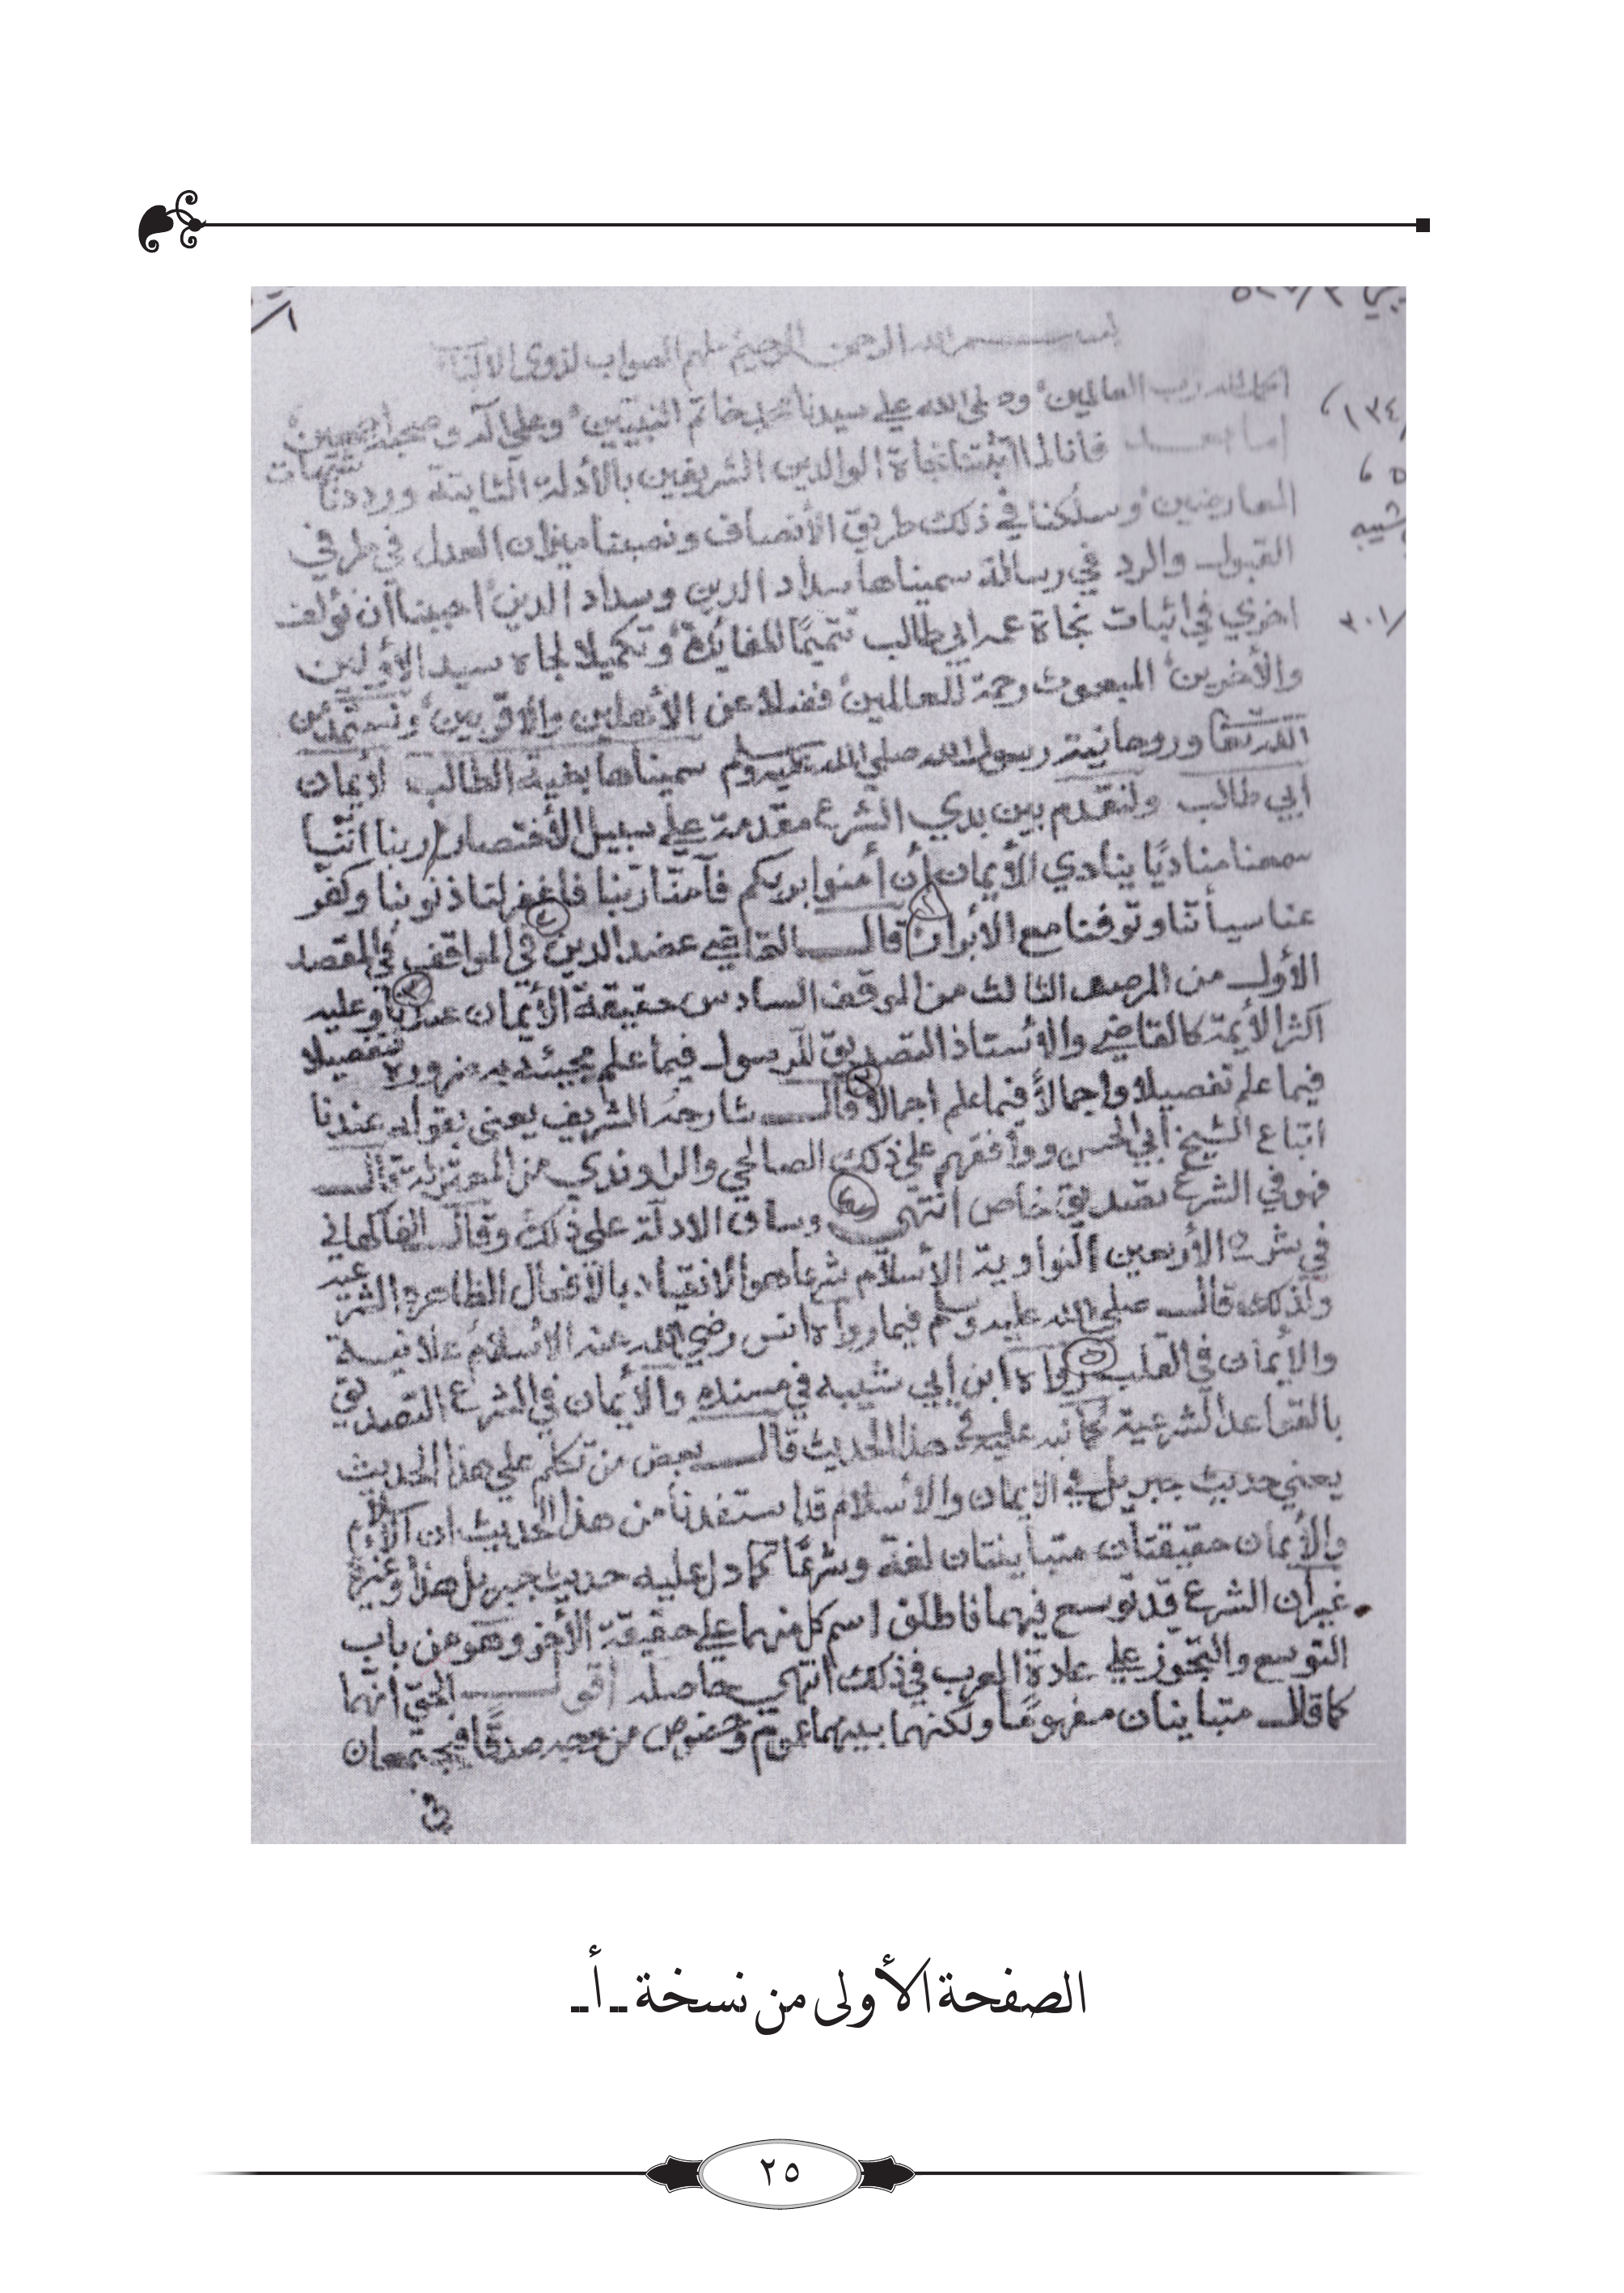 بسم الله الرحمن الرحيم ملهم الصواب لذوي الألباب
الحمد لله رب العالمين وصلى الله على سيدنا محمد خاتم النبيين وعلى آله وصحبه أجمعين
أما بعد فانا لما أثبتنا نجاة الوالدين الشريفين بالأدلة الثابتة ورددنا شبهات
المعارضين وسلكنا في ذلك طريق الأنصاف ونصبنا ميزان العدل في طرفي
القبول والرد في رسالة سميناها سداد الدين وسداد الدين أحببنا أن نؤلف
اخرى في اثبات نجاة عمه ابي طالب تتميمًا للفائدة وتكميلا لجاه سيد الأولين
والأخرين المبعوث رحمة للعالمين فضلا عن الأهلين والأقربين ونستمد من
الله ربنا وروحانية رسول الله صلي الله عليه وسلم سميناها بغية الطالب لإيمان
أبي طالب ولنقدم بين يدي الشرع مقدمة على سبيل الأختصار ربنا اننا
سمعنا مناديًا ينادي للأيمان أن أمنوا بربكم فآمنّا ربنا فاغفر لنا ذنوبنا وكفر
عنا سيأتنا وتوفنا مع الأبرار قال القاضي عضد الدين في المواقف في المقصد
الأول من المرصد الثالث من الموقف السادس حقيقة الأيمان عندنا وعليه
اكثر الأيمة كالقاضي والأستاذ التصديق للرسول فيما علم مجيئه به ضرورة تفصيلا
فيما علم تفصيلا واجمالاً فيما علم اجمالا قال شارحه الشريف يعني بقوله عندنا
اتباع الشيخ أبي الحسن ووافقهم على ذلك الصالحي والراوندي من المعتزلة قال
فهو في الشرع تصديق خاص انتهى وساق الادلة على ذلك وقال الفاكهاني
في شرح الأربعين النواوية الأسلام شرعا هو الانقياد بالأفعال الظاهرة الشرعية
ولذلك قال صلى الله عليه وسلم فيما رواه انس رضي الله عنه الأسلام علانية
والأيمان في القلب رواه ابن أبي شيبه في مسنده والأيمان في الشرع التصديق
بالقواعد الشرعية كما نبه عليه في هذا الحديث قال بعض من تكلم على هذا الحديث
يعني حديث جبريل في الايمان والأسلام قد استفدنا من هذا الحديث ان الاسلام
والأيمان حقيقتان متباينتان لغة وشرعًا كما دل عليه حديث جبريل هذا وغيره
غير أن الشرع قد توسع فيهما فاطلق اسم كل منهما على حقيقة الأخر وهو من باب
التوسع والتجوز على عادة العرب في ذلك انتهى حاصله أقول الحق أنهما
كما قال متباينان مفهومًا ولكنهما بينهما عموم وخصوص من وجه صدقًا فيجتمعان
في
الصفحة الأولى من نسخة ـ أ ـ
٢٥